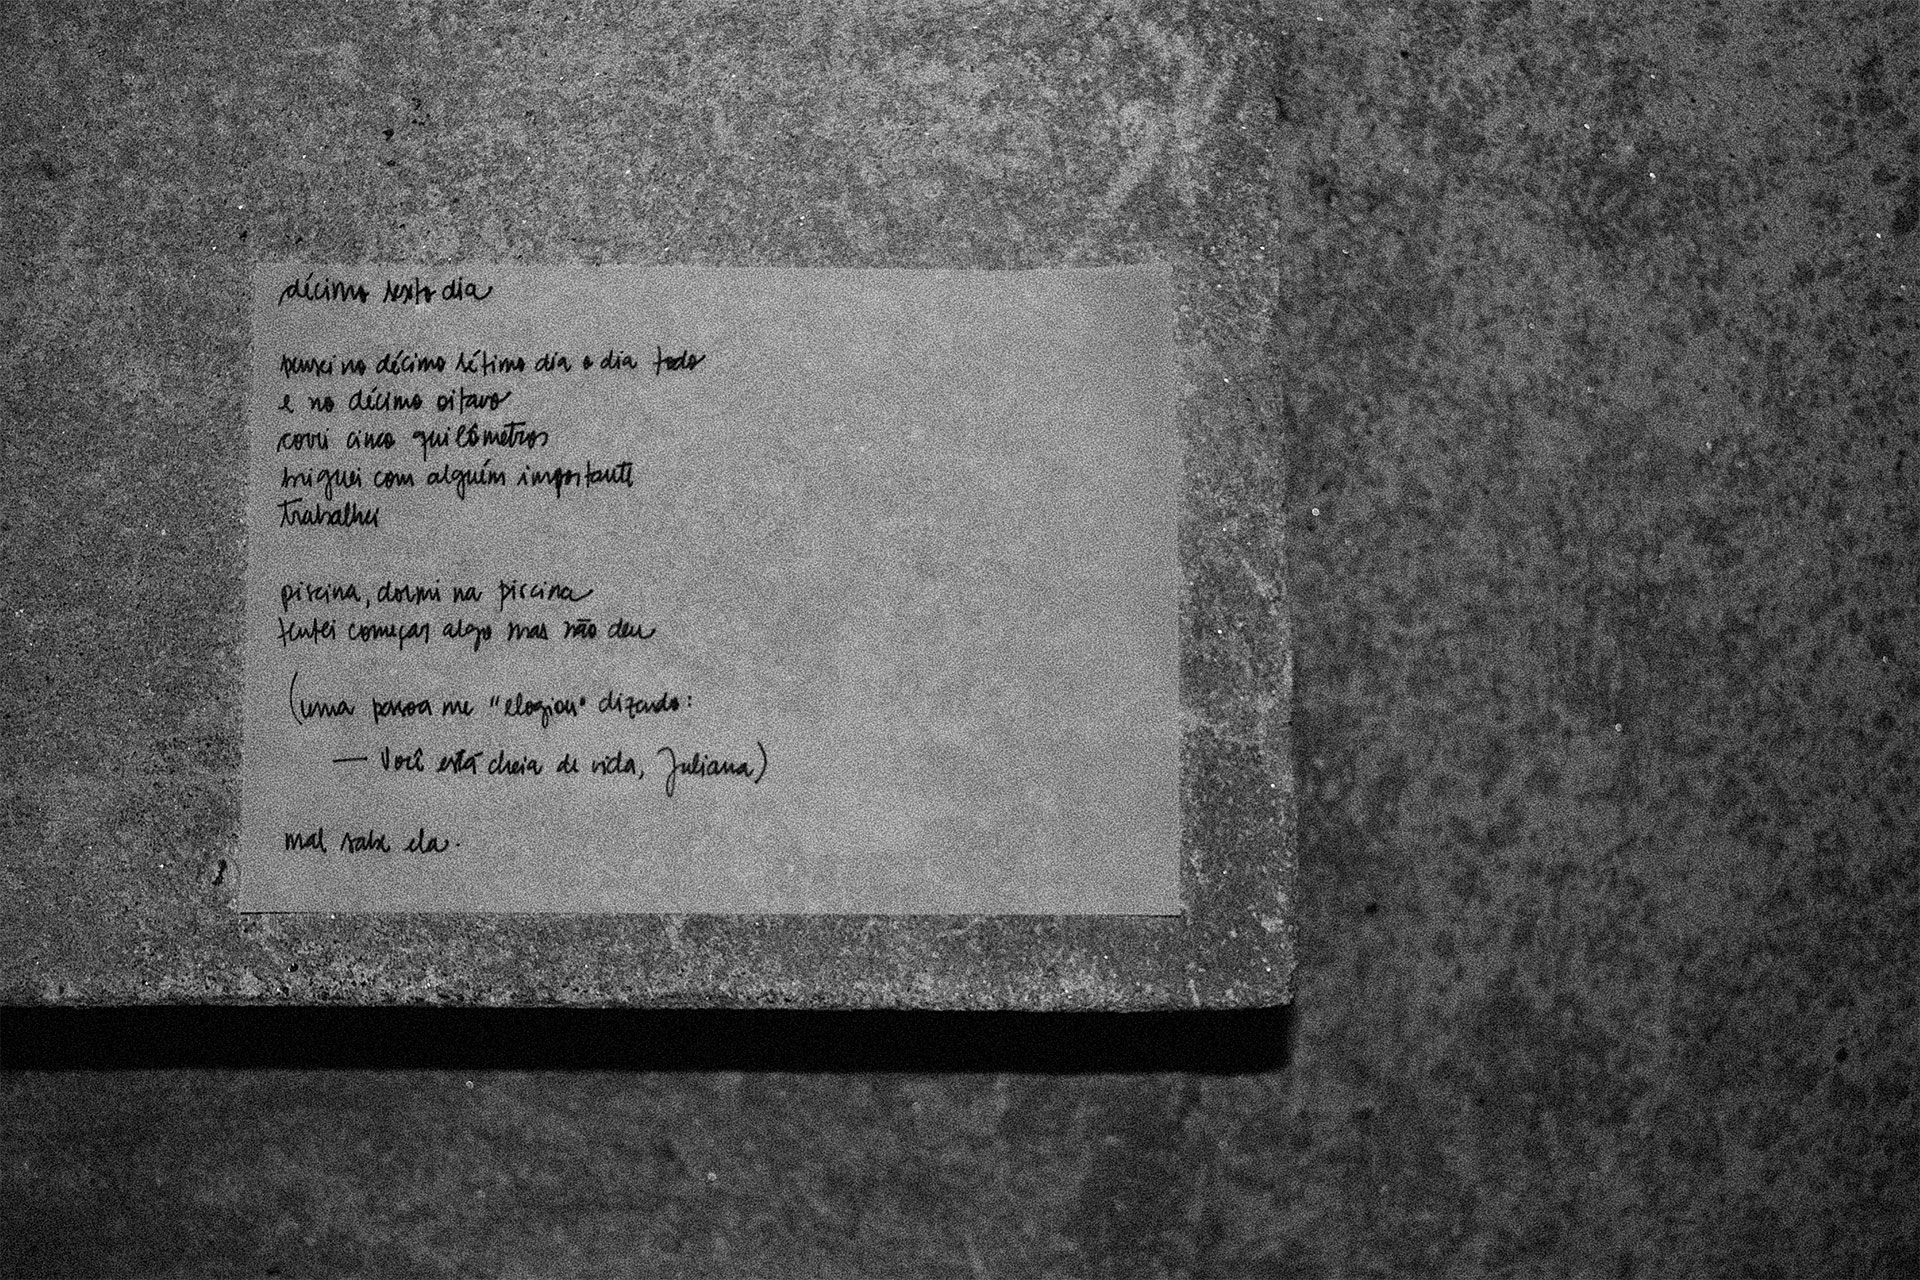 décimo sexto dia
pensei no décimo sétimo dia o dia todo
e no décimo oitavo
corri cinco quilômetros
briguei com alguém importante
trabalhei
piscina, dormi na piscina
tentei começar algo mas não deu
(uma pessoa me "elogiou" dizendo:
— Você está cheia de vida, Juliana)
mal sabe ela.